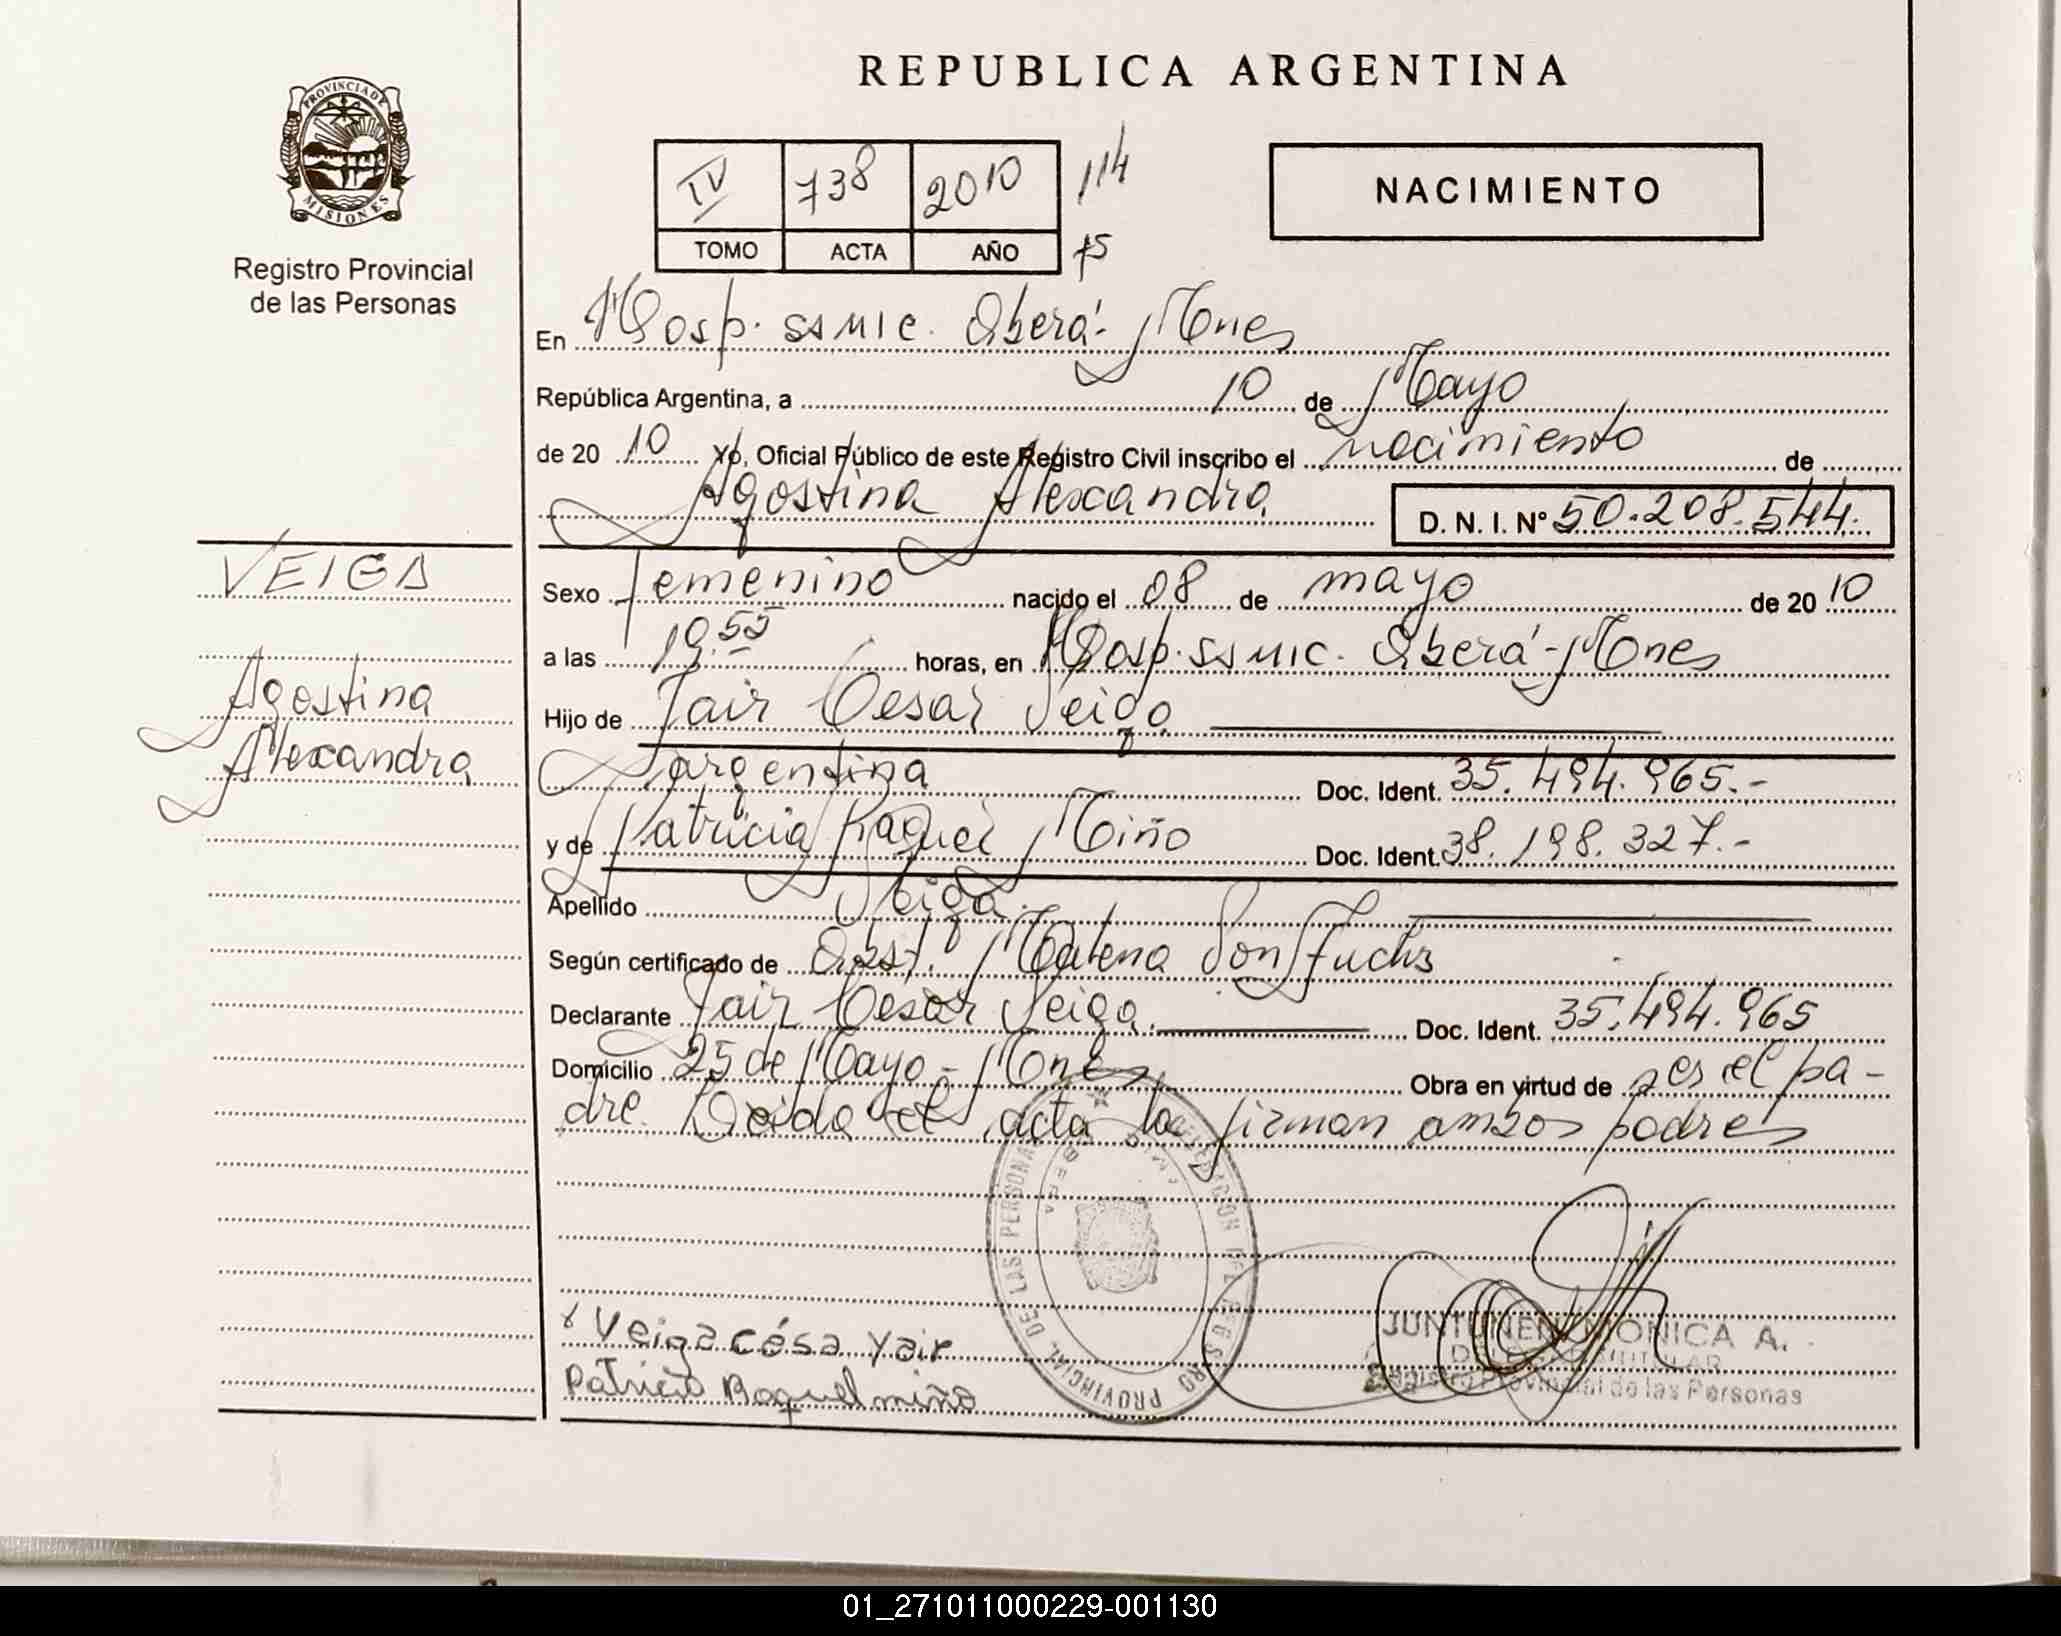 REPUBLICA ARGENTINA
PROVINCIA DE
MISIONES
Registro Provincial
de las Personas
IV 738 2010 114
TOMO ACTA AÑO 75
NACIMIENTO
En Hosp. SSMIC. Oberá- Mnes
República Argentina, a 10 de Mayo
de 20 10 Yo, Oficial Público de este Registro Civil inscribo el nacimiento de
Agostina Alexandra D. N. I. Nº 50.208.544.
VEIGA
Agostina
Alexandra
Sexo femenino nacido el 08 de mayo de 20 10
a las 19.55 horas, en Hosp. SSMIC. Oberá-Mnes
Hijo de Jair Cesar Veiga
argentina Doc. Ident. 35.494.965.-
y de Patricia Raquel Miño Doc. Ident. 38.198.327.-
Apellido Veiga.
Según certificado de Obst. Malena Von
Declarante Jair Cesar Veiga. Doc. Ident. 35.494.965
Domicilio 25 de Mayo - Mnes Obra en virtud de ser el pa-
dre. Leida el acta la firman ambos padres
DELEGACION DEL REGISTRO PROVINCIAL DE LAS PERSONAS
OBERA
Veiga césa Yair
Patricia Raquel miño
JUNTUNEN MONICA A.
TITULAR
Registro Provincial de las Personas
01_271011000229-001130